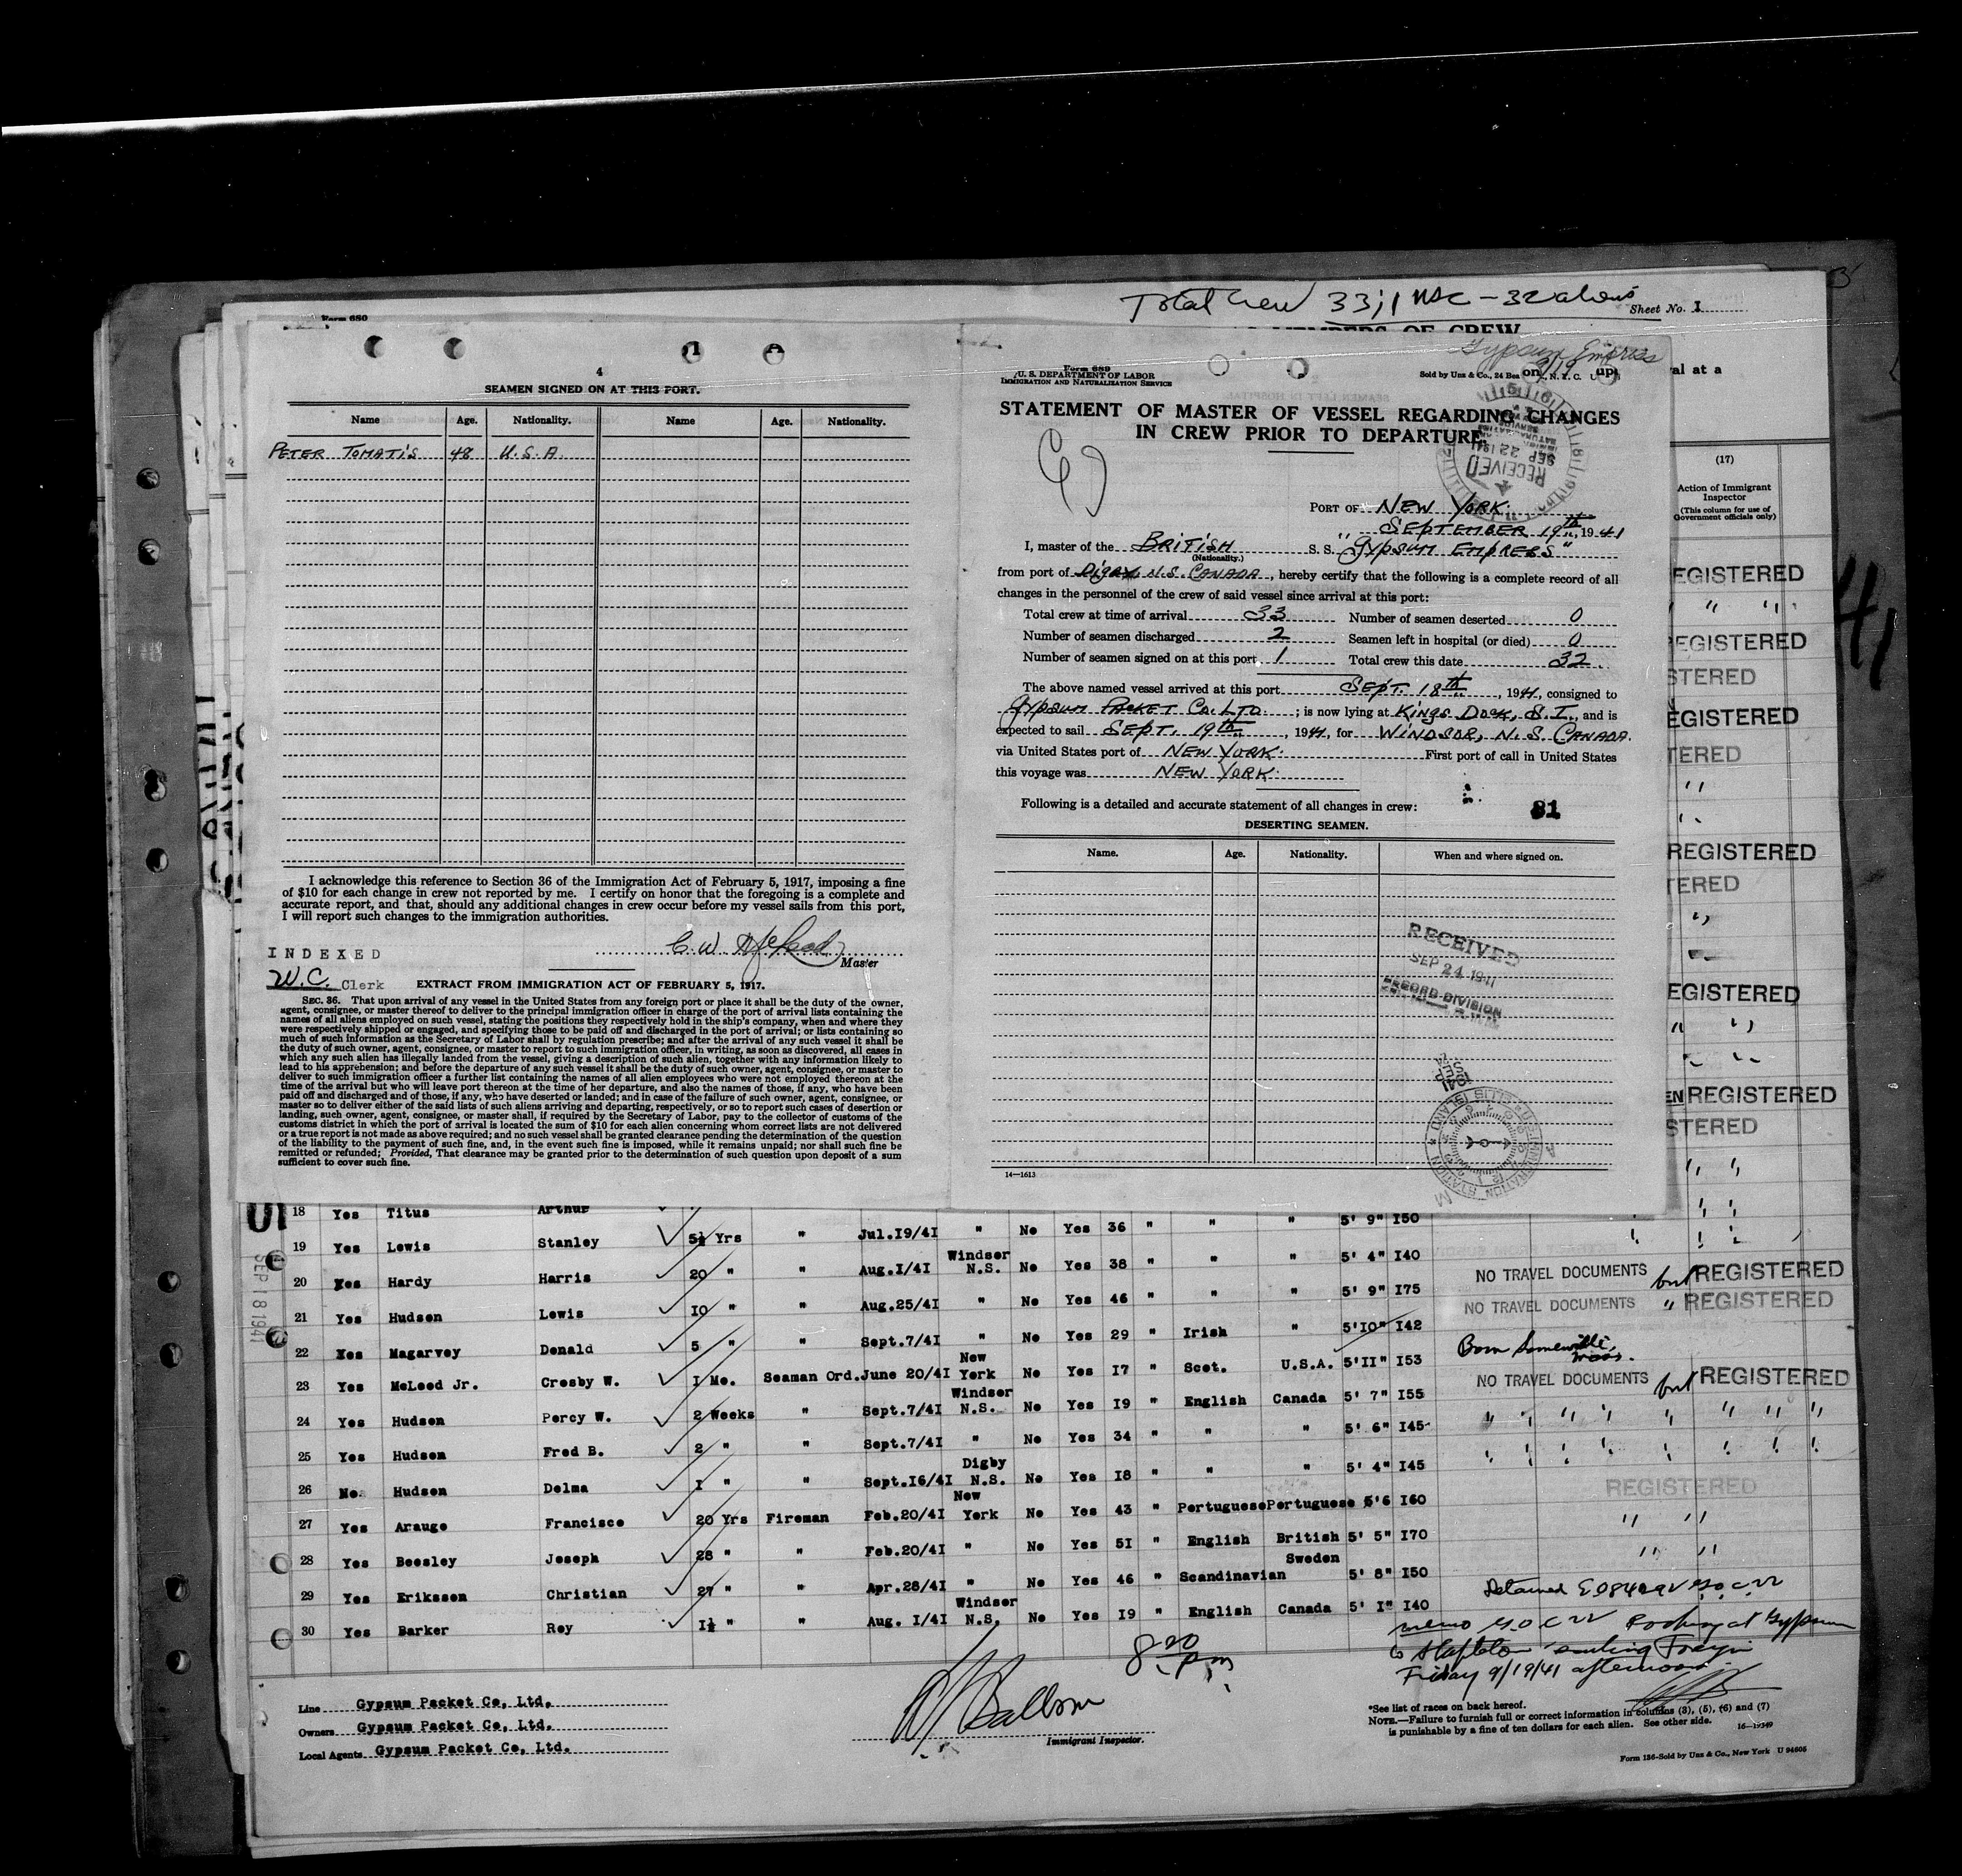 Total Crew 33; 1 USC - 32 aliens
Sheet No. 1
MEMBERS OF CREW
val at a
Form 680
4
SEAMEN SIGNED ON AT THIS PORT.
Name Age. Nationality. Name Age. Nationality.
PETER TOMATIS 48 U.S.A.
I acknowledge this reference to Section 36 of the Immigration Act of February 5, 1917, imposing a fine
of $10 for each change in crew not reported by me. I certify on honor that the foregoing is a complete and
accurate report, and that, should any additional changes in crew occur before my vessel sails from this port,
I will report such changes to the immigration authorities.
INDEXED
C. W. McLeod
Master
W.C. Clerk
EXTRACT FROM IMMIGRATION ACT OF FEBRUARY 5, 1917.
SEC. 36. That upon arrival of any vessel in the United States from any foreign port or place it shall be the duty of the owner,
agent, consignee, or master thereof to deliver to the principal immigration officer in charge of the port of arrival lists containing the
names of all aliens employed on such vessel, stating the positions they respectively hold in the ship's company, when and where they
were respectively shipped or engaged, and specifying those to be paid off and discharged in the port of arrival; or lists containing so
much of such information as the Secretary of Labor shall by regulation prescribe; and after the arrival of any such vessel it shall be
the duty of such owner, agent, consignee, or master to report to such immigration officer, in writing, as soon as discovered, all cases in
which any such alien has illegally landed from the vessel, giving a description of such alien, together with any information likely to
lead to his apprehension; and before the departure of any such vessel it shall be the duty of such owner, agent, consignee, or master to
deliver to such immigration officer a further list containing the names of all alien employees who were not employed thereon at the
time of the arrival but who will leave port thereon at the time of her departure, and also the names of those, if any, who have been
paid off and discharged and of those, if any, who have deserted or landed; and in case of the failure of such owner, agent, consignee, or
master so to deliver either of the said lists of such aliens arriving and departing, respectively, or so to report such cases of desertion or
landing, such owner, agent, consignee, or master shall, if required by the Secretary of Labor, pay to the collector of customs of the
customs district in which the port of arrival is located the sum of $10 for each alien concerning whom correct lists are not delivered
or a true report is not made as above required; and no such vessel shall be granted clearance pending the determination of the question
of the liability to the payment of such fine, and, in the event such fine is imposed, while it remains unpaid; nor shall such fine be
remitted or refunded; Provided, That clearance may be granted prior to the determination of such question upon deposit of a sum
sufficient to cover such fine.
Gypsum Empress
9/19
Form 689
U. S. DEPARTMENT OF LABOR
IMMIGRATION AND NATURALIZATION SERVICE
Sold by Unz & Co., 24 Bea N.Y.C.
STATEMENT OF MASTER OF VESSEL REGARDING CHANGES
IN CREW PRIOR TO DEPARTURE
RECEIVED
SEP 22 1941
PORT OF NEW YORK.
SEPTEMBER 19th, 1941
I, master of the BRITISH S. S. "GYPSUM EMPRESS"
(Nationality.)
from port of Digby N.S. CANADA, hereby certify that the following is a complete record of all
changes in the personnel of the crew of said vessel since arrival at this port:
Total crew at time of arrival 33 Number of seamen deserted 0
Number of seamen discharged 2 Seamen left in hospital (or died) 0
Number of seamen signed on at this port 1 Total crew this date 32
The above named vessel arrived at this port SEPT. 18th, 1941, consigned to
GYPSUM PACKET CO. LTD. ; is now lying at KINGS DOCK, S.I., and is
expected to sail SEPT. 19th, 1941, for WINDSOR, N.S. CANADA.
via United States port of NEW YORK. First port of call in United States
this voyage was NEW YORK.
Following is a detailed and accurate statement of all changes in crew:
81
DESERTING SEAMEN.
Name. Age. Nationality. When and where signed on.
RECEIVED
SEP 24 1941
RECORD DIVISION
14—1613
(17)
Action of Immigrant
Inspector
(This column for use of
Government officials only)
EGISTERED
" "
REGISTERED
STERED
EGISTERED
TERED
REGISTERED
TERED
EGISTERED
REGISTERED
STERED
41
SEP 18 1941
18 Yes Titus Arthur " " " 5' 9" I50
19 Yes Lewis Stanley 5½ Yrs " Jul.I9/4I " No Yes 36 " " " 5' 4" I40
20 Yes Hardy Harris 20 " " Aug.I/4I Windsor N.S. No Yes 38 " " " 5' 9" I75 NO TRAVEL DOCUMENTS but REGISTERED
21 Yes Hudson Lewis I0 " " Aug.25/4I " No Yes 46 " " " 5'I0" I42 NO TRAVEL DOCUMENTS " REGISTERED
22 Yes Magarvey Donald 5 " " Sept.7/4I " No Yes 29 " Irish "
23 Yes McLeod Jr. Crosby W. I Mo. Seaman Ord. June 20/4I New York No Yes I7 " Scot. U.S.A. 5'II" I53 Born Somerville, Mass.
24 Yes Hudson Percy W. 2 Weeks " Sept.7/4I Windsor N.S. No Yes I9 " English Canada 5' 7" I55 NO TRAVEL DOCUMENTS but REGISTERED
25 Yes Hudson Fred B. 2 " " Sept.7/4I " No Yes 34 " " " 5' 6" I45 " " " " " " " "
26 No Hudson Delma I " " Sept.I6/4I Digby N.S. No Yes I8 " " " 5' 4" I45 " " " " " " " "
27 Yes Arauge Francisco 20 Yrs Fireman Feb.20/4I New York No Yes 43 " Portuguese Portuguese 5'6 I60 REGISTERED
28 Yes Beesley Joseph 28 " " Feb.20/4I " No Yes 5I " English British 5' 5" I70 " "
29 Yes Eriksson Christian 27 " " Apr.28/4I " No Yes 46 " Scandinavian Sweden 5' 8" I50 " "
30 Yes Barker Roy I½ " " Aug. I/4I Windsor N.S. No Yes I9 " English Canada 5' I" I40 Detained
memo Gypsum
to Stapleton Foreign
Friday 9/19/41 afternoon
8 20 pm
Line Gypsum Packet Co, Ltd.
Owners Gypsum Packet Co, Ltd.
Local Agents Gypsum Packet Co, Ltd.
Immigrant Inspector.
*See list of races on back hereof.
NOTE.—Failure to furnish full or correct information in columns (3), (5), (6) and (7)
is punishable by a fine of ten dollars for each alien. See other side.
16—19349
Form 136-Sold by Unz & Co., New York U 94605